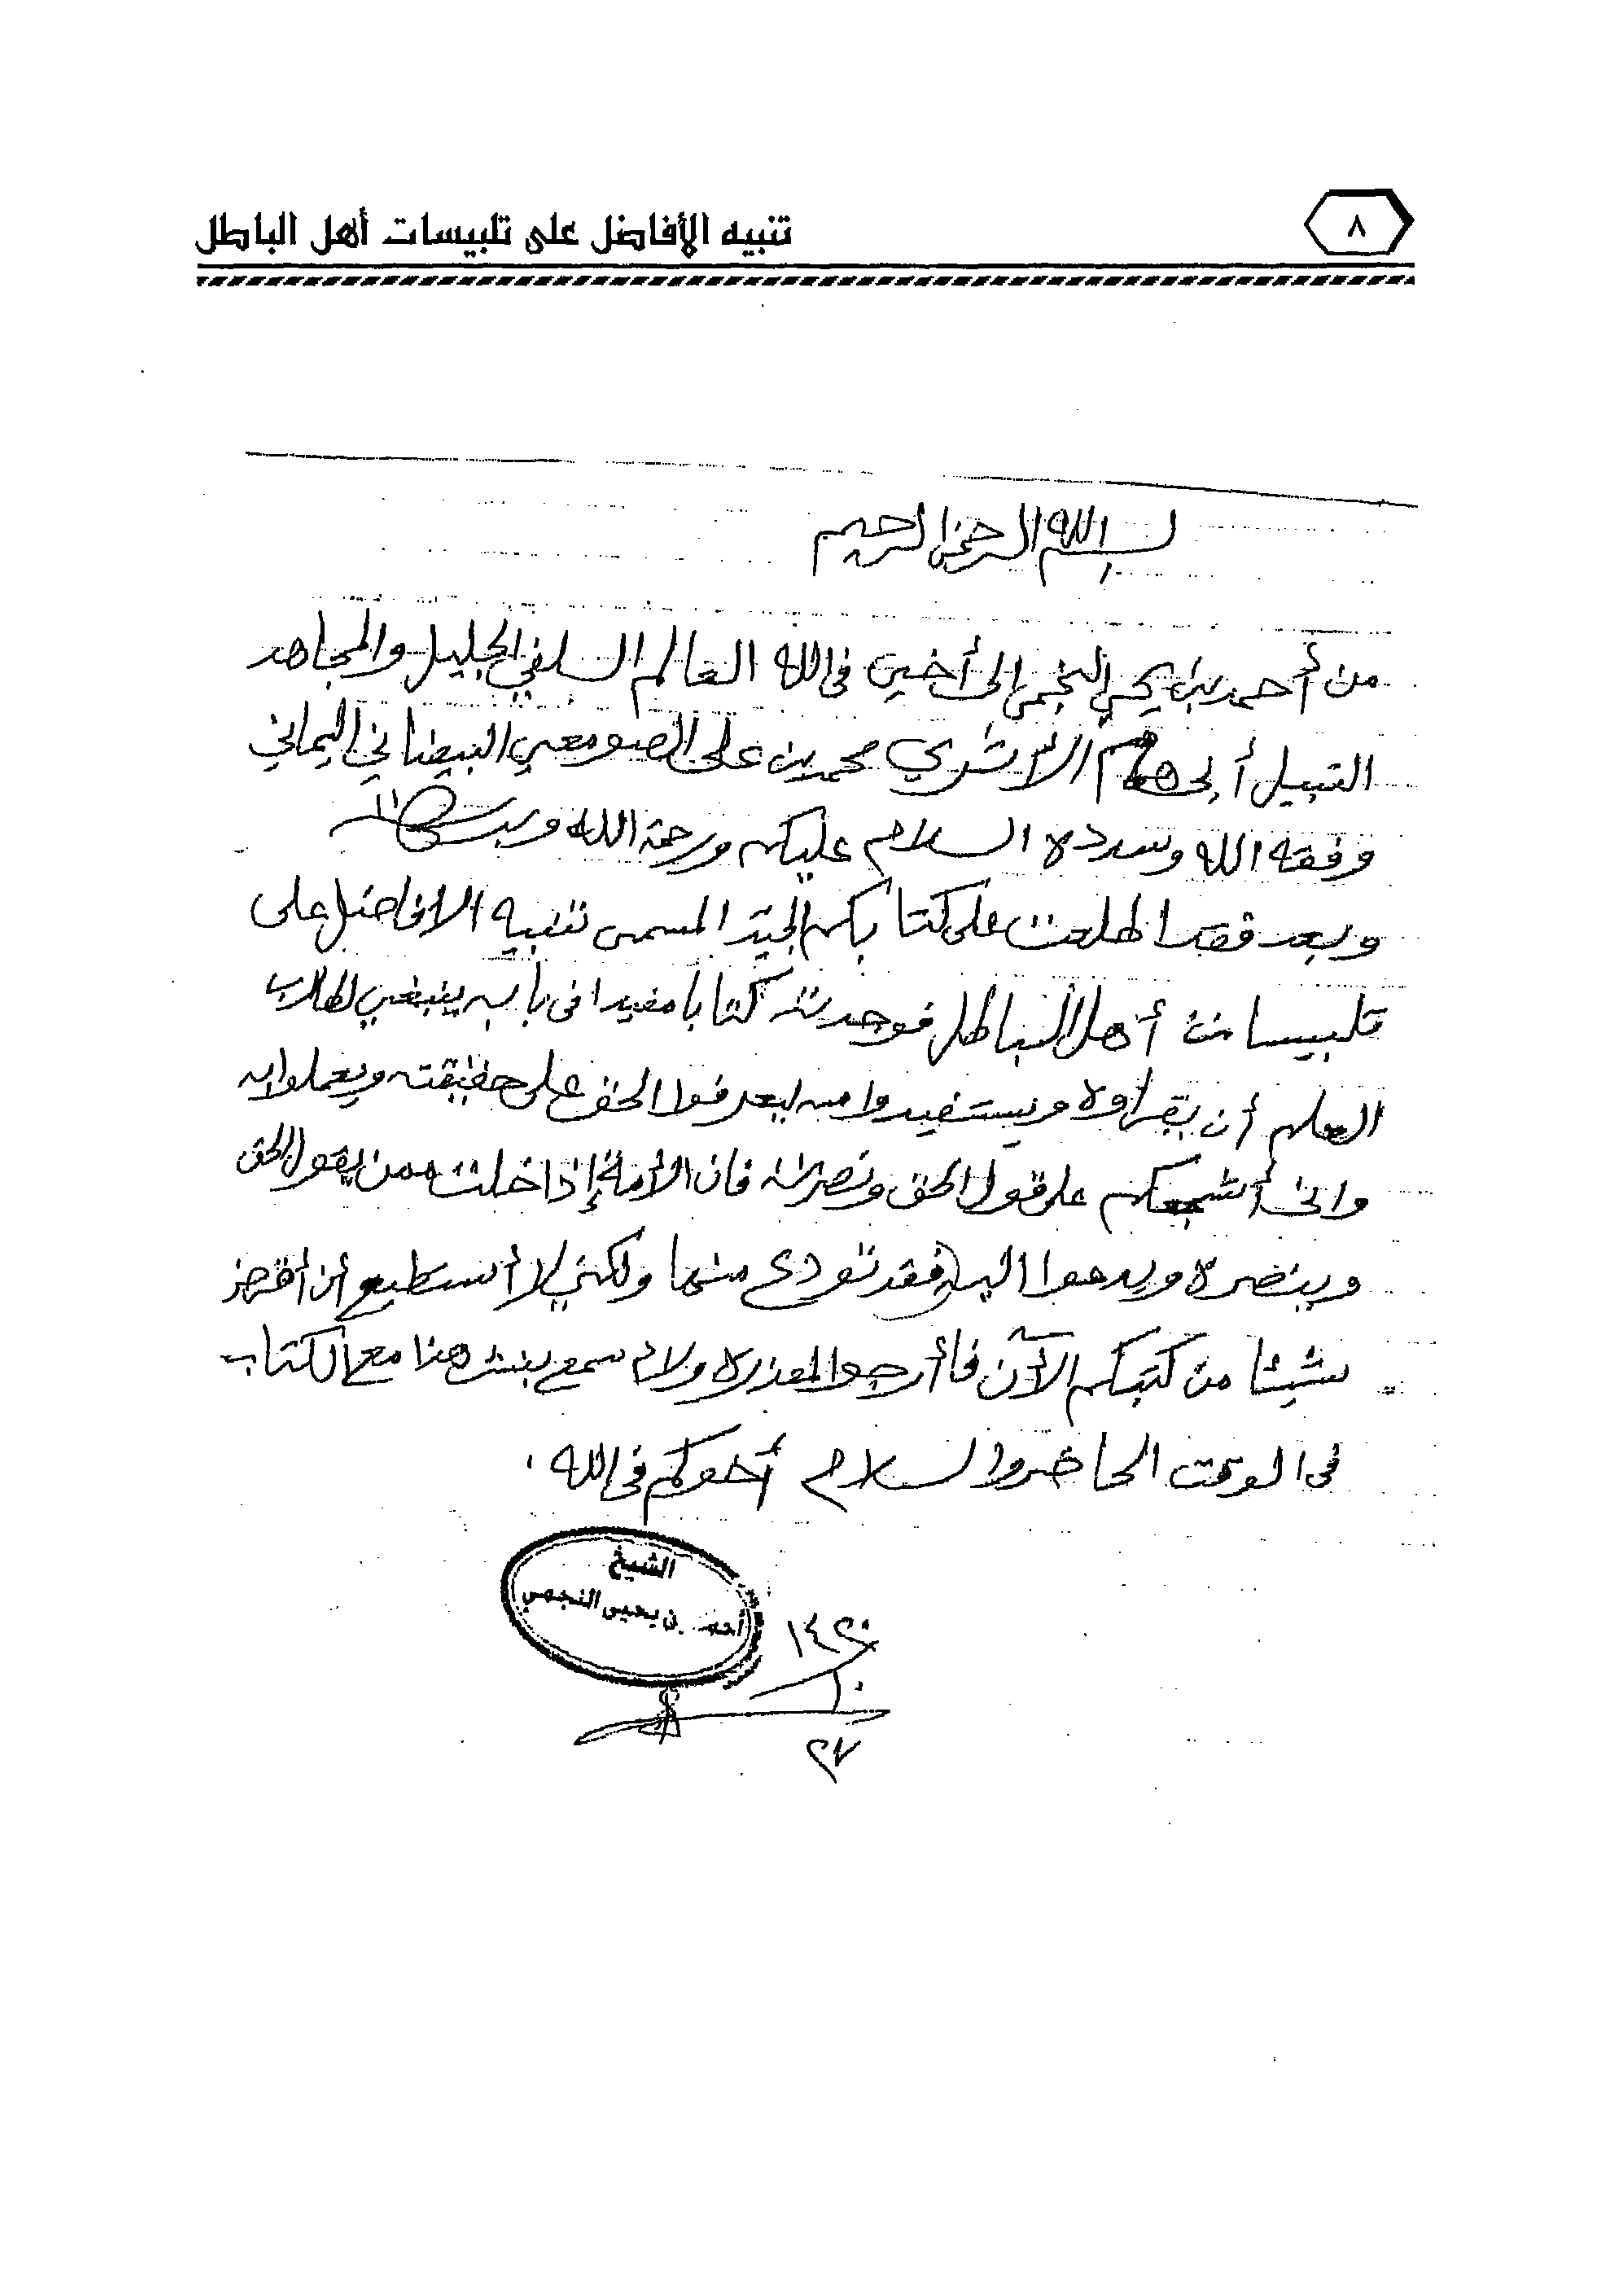 ٨
تنبيه الأفاضل على تلبيسات أهل الباطل
بسم الله الرحمن الرحيم
من أحمد بن يحيى النجمي إلى أخين في الله العالم السلفي الجليل والمجاهد
النبيل أبي همام الأثري محمد بن على الصومعي البيضاني اليماني
وفقه الله وسدده السلام عليكم ورحمة الله وبركاته
وبعد فقد اطلعت على كتابكم الجيّد المسمى تنبيه الافاضل على
تلبيسات أهل الباطل فوجدته كتابا مفيدا في بابه ينبغي لطلاب
العلم أن يقراوه ويستفيدوا منه ليعرفوا الحق على حقيقته ويعملوا به
واني أشجعكم على قول الحق ونصرته فان الأمة إذا خلت ممن يقول الحق
وينصره ويدعوا اليه فقد تودع منها ولكني لا أستطيع أن أقرض
شيئا من كتبكم الآن فأرجوا المعذرة ولا يسمع بنشر هذا مع الكتاب
في الوقت الحاضر والسلام أخوكم في الله
الشيخ
أحمد بن يحيى النجمي
١٤٢٠
١٠
٢٧